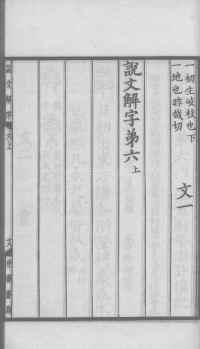 一初生岐枝也下
一地也昨哉切
文一
說文解字弟六上